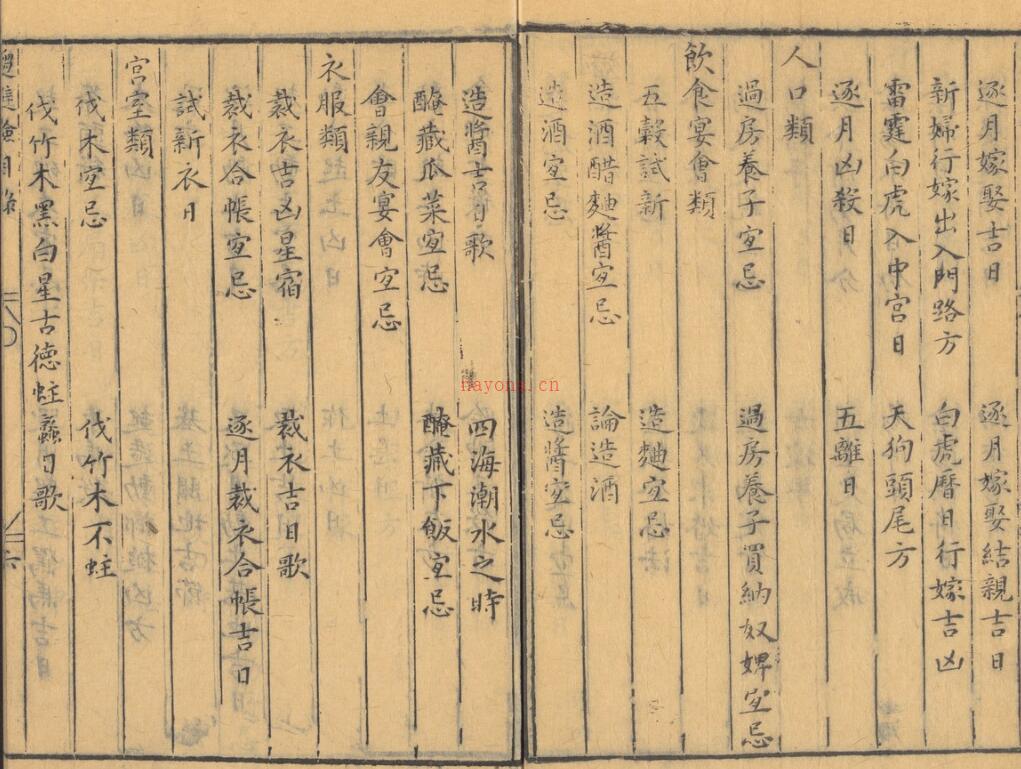 逐月嫁娶吉日 逐月嫁娶結親吉日
新婦行嫁出入門路方 白虎曆日行嫁吉凶
雷霆白虎入中宮日 天狗頭尾方
逐月凶殺日 五離日
人口類
過房養子宜忌 過房養子買納奴婢宜忌
飲食宴會類
五穀試新 造麯宜忌
造酒醋麯醬宜忌 論造酒
造酒宜忌 造醬宜忌
造醬吉日歌 四海潮水之時
醃藏瓜菜宜忌 醃藏下飯宜忌
會親友宴會宜忌
衣服類
裁衣吉凶星宿 裁衣吉日歌
裁衣合帳宜忌 逐月裁衣合帳吉日
試新衣日
宮室類
伐木宜忌 伐竹木不蛀
伐竹木黑白星古德蛀蟲日歌
目
六
nayona.cn